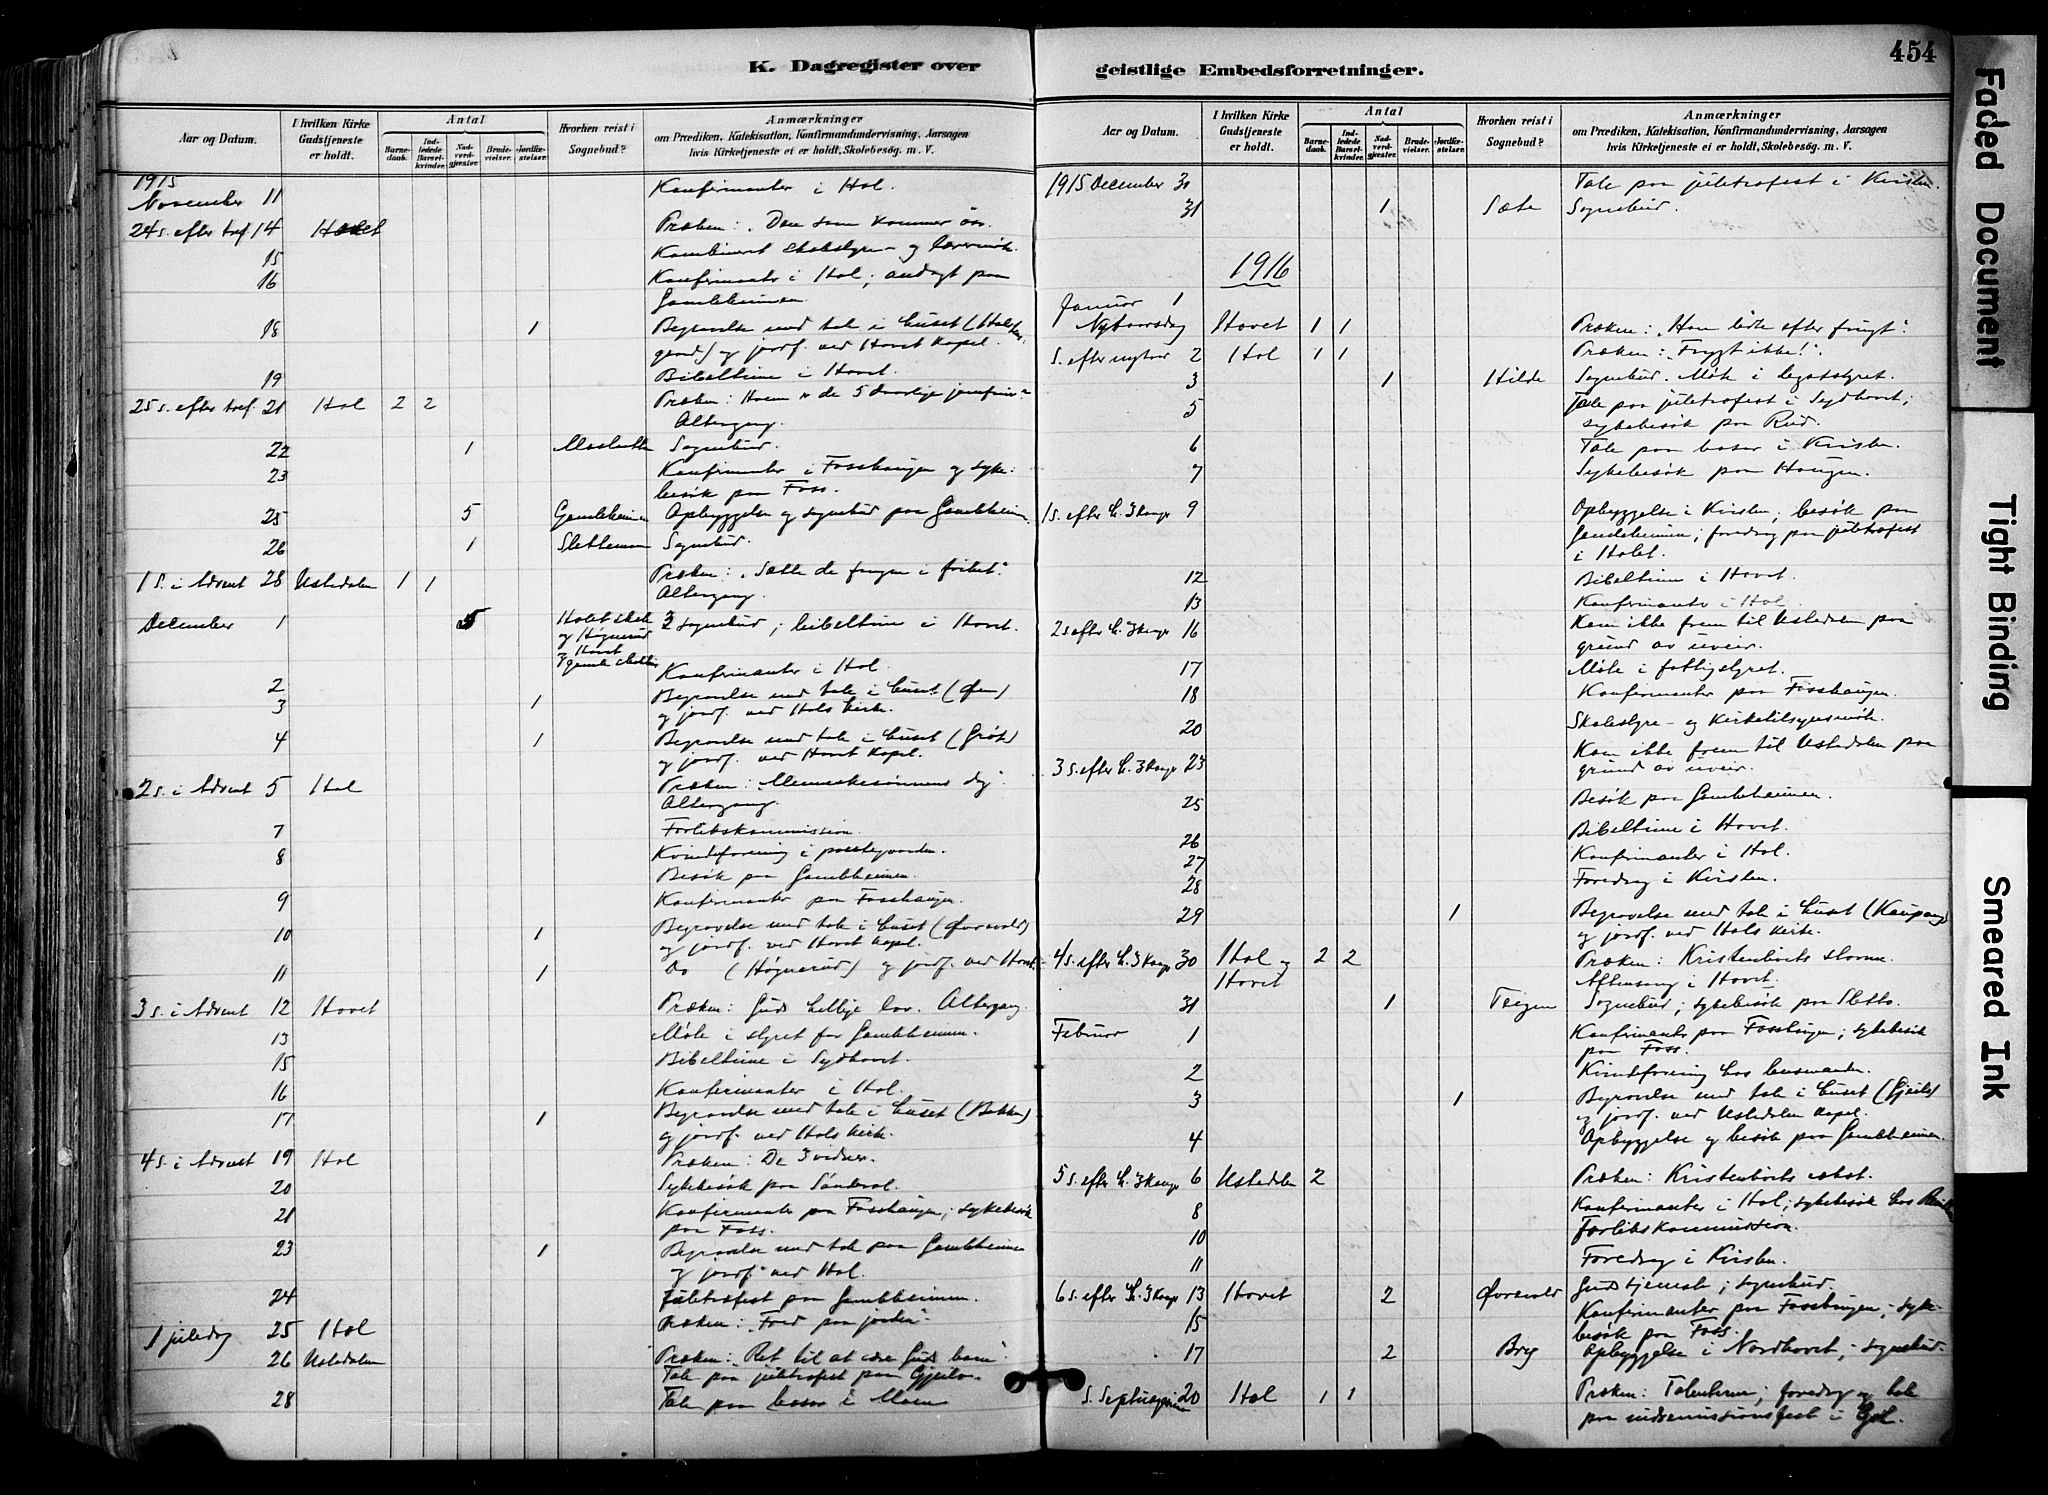 K. Dagregister over
Aar og Datum.
I hvilken Kirke Gudstjeneste er holdt.
Antal
Barnedaab.
Indledede Barselkvinder.
Nadverdgjester.
Brudevielser.
Jordfæstelser.
Hvorhen reist i Sognebud?
Anmærkninger
om Prædiken, Katekisation, Konfirmandundervisning, Aarsagen
hvis Kirketjeneste ei er holdt, Skolebesøg. m. V.
1915
November 11 Konfirmanter i Hol.
24 s. efter tref. 14 Hovet Præken: "Den som kommer
15 Kombineret skolestyre- og
16 Konfirmanter i Hol; andagt paa
Gamleheimen.
18 1 Begravelse med tale i huset
og jordf. ved Hovet Kapel.
19 Bibeltime i Hovet.
25 s. efter tref. 21 Hol 2 2 Præken: Hvem er de 5 daarlige jomfruer?
Altergang.
22 1 Sognebud.
23 Konfirmanter i Fosshaugen og syke-
besøk paa Foss.
25 5 Gamleheimen Opbyggelse og sognebud paa Gamleheimen
26 1 Slettemoen Sognebud.
1 s. i Advent 28 Ustedalen 1 1 Præken: "Sætte de fangne i frihet".
Altergang.
December 1 5 3 sognebud; bibeltime i Hovet.
og Høgnerud
2 Konfirmanter i Hol.
3 1 Begravelse med tale i huset
og jordf. ved Hols Kirke.
4 1 Begravelse med tale i huset (Grøt)
og jordf. ved Hovet Kapel.
2 s. i Advent 5 Hol Præken: Menneskesønnens dag.
Altergang.
7 Forlikskommission.
8 Kvindeforening i prestegaarden.
Besøk paa Gamleheimen.
9 Konfirmanter paa Fosshaugen.
10 1 Begravelse med tale i huset (Øvrevold)
og jordf. ved Hovet Kapel.
11 1 Do (Høgnerud) og jordf. ved Hovet
3 s. i Advent 12 Hovet Præken: Guds hellige lov. Altergang
13 Møte i styret for Gamleheimen.
15 Bibeltime i Sydhovet.
16 Konfirmanter i Hol.
17 1 Begravelse med tale i huset (Bakken)
og jordf. ved Hols Kirke.
4 s. i Advent 19 Hol Præken: De 3 vidner.
20 Sykebesøk paa Sønderal.
21 Konfirmanter paa Fosshaugen; sykebesøk
paa Foss.
23 1 Begravelse med tale paa Gamleheimen
og jordf. ved Hol.
24 Juletræfest paa Gamleheimen.
1 juledag 25 Hol Præken: "Fred paa jorden".
26 Ustedalen Præken: "Ret til at være Guds barn"
Tale paa juletræfest paa Gjeilo.
28 Tale paa basar i Moen
geistlige Embedsforretninger.
454
Aar og Datum.
I hvilken Kirke Gudstjeneste er holdt.
Antal
Barnedaab.
Indledede Barselkvinder.
Nadverdgjester.
Brudevielser.
Jordfæstelser.
Hvorhen reist i Sognebud?
Anmærkninger
om Prædiken, Katekisation, Konfirmandundervisning, Aarsagen
hvis Kirketjeneste ei er holdt, Skolebesøg. m. V.
1915 December 30 Tale paa juletræfest i Kvislen.
31 1 Sæte Sognebud.
1916
Januar 1
Nytaarsdag Hovet 1 1 Præken: "Han ledte efter frugt".
S. efter nytaar 2 Hol 1 1 Præken: "Frygt ikke!".
3 1 Hilde Sognebud. Møte i legatstyret.
5 Tale paa juletræfest i Sydhovet;
sykebesøk paa Rud.
6 Tale paa basar i Kvislen.
7 Sykebesøk paa Haugen.
1 s. efter h. 3 Konger 9 Opbyggelse i Kvislen; besøk paa
Gamleheimen; foredrag paa juletræfest
i Holet.
12 Bibeltime i Hovet.
13 Konfirmanter i Hol.
2 s. efter h. 3 Konger 16 Kom ikke frem til Ustedalen paa
grund av uveir.
17 Møte i fattigstyret.
18 Konfirmanter paa Fosshaugen.
20 Skolestyre- og Kirketilsynsmøte.
3 s. efter h. 3 Konger 23 Kom ikke frem til Ustedalen paa
grund av uveir.
25 Besøk paa Gamleheimen.
26 Bibeltime i Hovet.
27 Konfirmanter i Hol.
28 Foredrag i Kvislen.
29 1 Begravelse med tale i huset (Kaupang)
og jordf. ved Hols Kirke.
4 s. efter h. 3 Konger 30 Hol og 2 2 Præken: Kristenlivets storm.
Hovet Aftensang i Hovet.
31 1 Teigen Sognebud; sykebesøk paa Sletto.
Februar 1 Konfirmanter paa Fosshaugen; sykebesøk
paa Foss.
2 Kvindeforening hos lensmanden.
3 1 Begravelse med tale i huset (Gjeilo)
og jordf. ved Ustedalen Kapel.
4 Opbyggelse og besøk paa Gamleheimen.
5 s. efter h. 3 Konger 6 Ustedalen 2 Præken: Kristenlivets vekst.
8 Konfirmanter i Hol; sykebesøk hos
10 Forlikskommission.
11 Foredrag i Kvislen.
6 s. efter h. 3 Konger 13 Hovet 2 Øvrevold Gudstjeneste; sognebud.
15 Konfirmanter paa Fosshaugen; syke-
besøk paa Foss.
17 2 Breg Opbyggelse i Nordhovet; sognebud.
S. Septuagesima 20 Hol 1 1 Præken: Talenterne; foredrag og tale
paa indremissionsfest i Gol.
Faded Document
Tight Binding
Smeared Ink